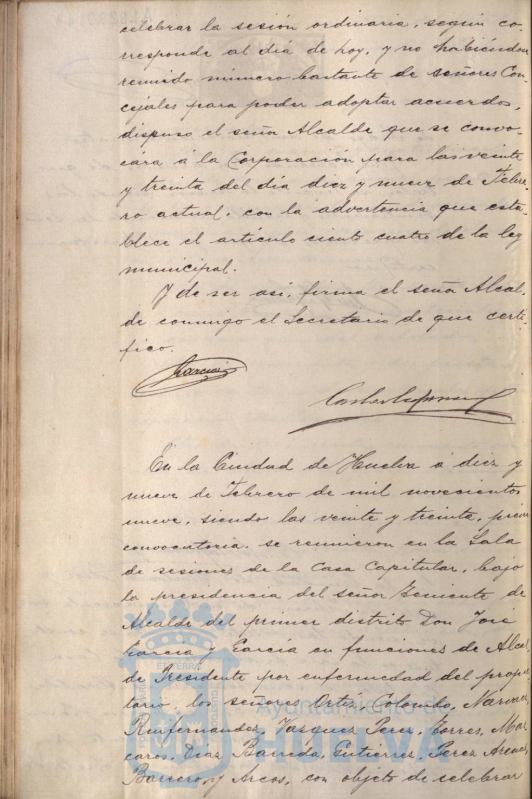 celebrar la sesión ordinaria, según co-
rresponde al día de hoy, y no habiéndose
reunido número bastante de señores Con-
cejales para poder adoptar acuerdos,
dispuso el señor Alcalde que se convo-
cára á la Corporación para las veinte
y treinta del día diez y nueve de Febre-
ro actual, con la advertencia que esta-
blece el artículo ciento cuatro de la ley
municipal.
Y de ser así, firma el señor Alcal-
de conmigo el Secretario de que certi-
fico.
García
En la Ciudad de Huelva á diez y
nueve de Febrero de mil novecientos
nueve, siendo las veinte y treinta, previa
convocatoria, se reunieron en la Sala
de sesiones de la Casa Capitular, bajo
la presidencia del señor Teniente de
Alcalde del primer distrito Don José
García y García en funciones de Alcal-
de Presidente por enfermedad del propie-
tario, los señores Ortiz, Colombo, Narvaez
Ruifernandez, Vasquez Perez, Torres, Mas
caros, Diaz Barreda, Gutierrez, Perez Arenas,
Barrero, y Arcos, con objeto de celebrar
Ayuntamiento de
HUELVA